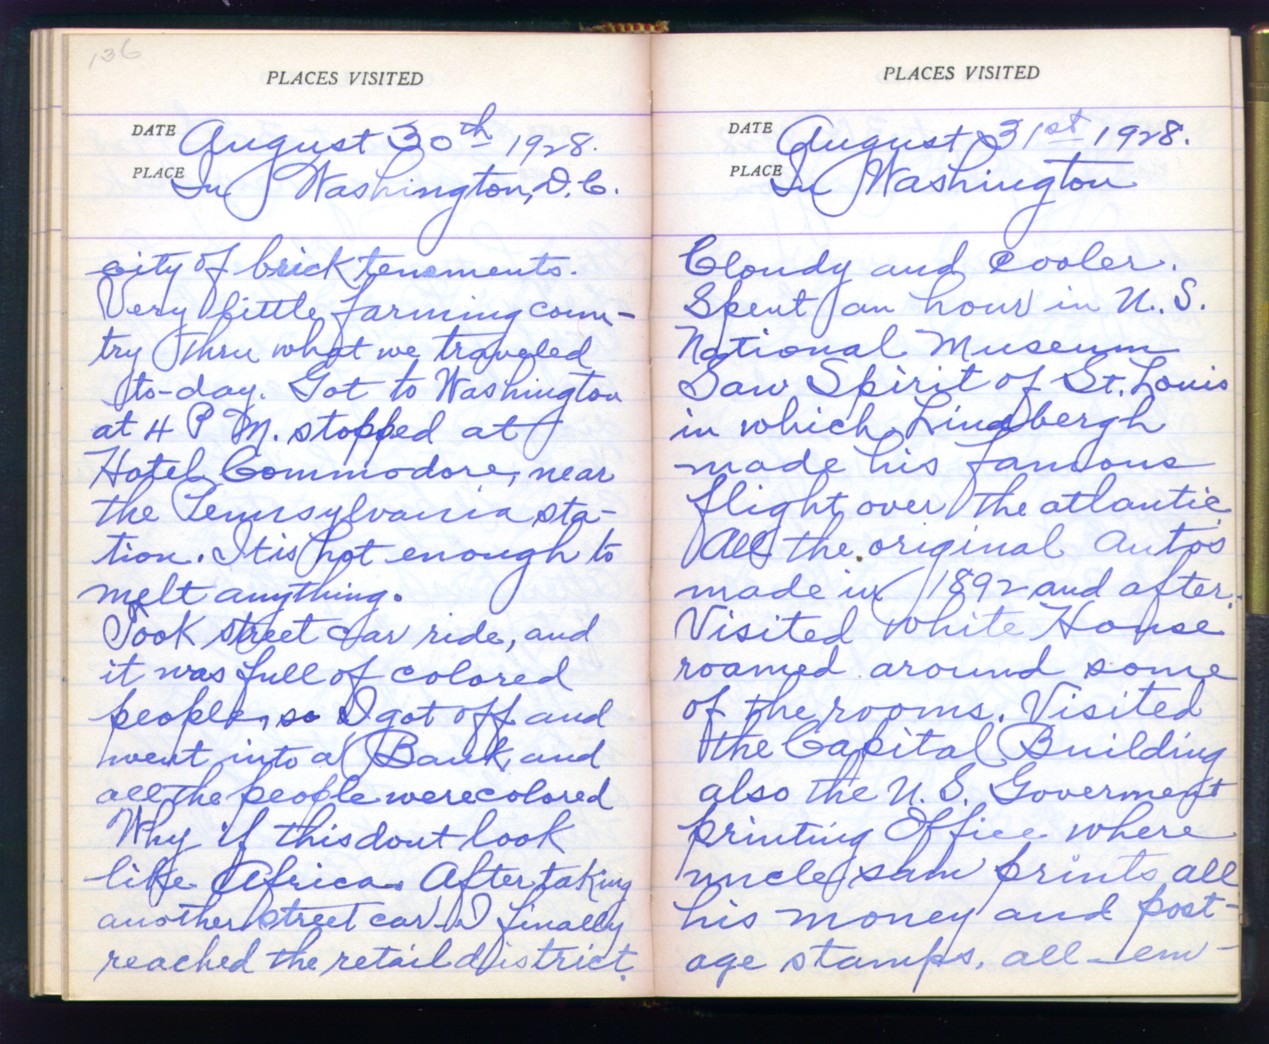 136
PLACES VISITED
DATE August 30th 1928.
PLACE In Washington, D.C.
city of brick tenements.
Very little farming coun-
try thru what we traveled
to-day. Got to Washington
at 4 P.M. stopped at
Hotel Commodore, near
the Pennsylvania sta-
tion. It is hot enough to
melt anything.
Took street car ride, and
it was full of colored
people, so I got off and
went into a Bank, and
all the people were colored
Why if this dont look
like Africa. After taking
another street car I finally
reached the retail district.
PLACES VISITED
DATE August 31st 1928.
PLACE In Washington
Cloudy and cooler.
Spent an hour in U.S.
National Museum
Saw Spirit of St. Louis
in which Lindbergh
made his famous
flight over the atlantic
All the original autos
made in 1892 and after.
Visited White House
roamed around some
of the rooms. Visited
the Capital Building
also the U.S. Goverment
printing Office where
uncle sam prints all
his money and post-
age stamps, all em-